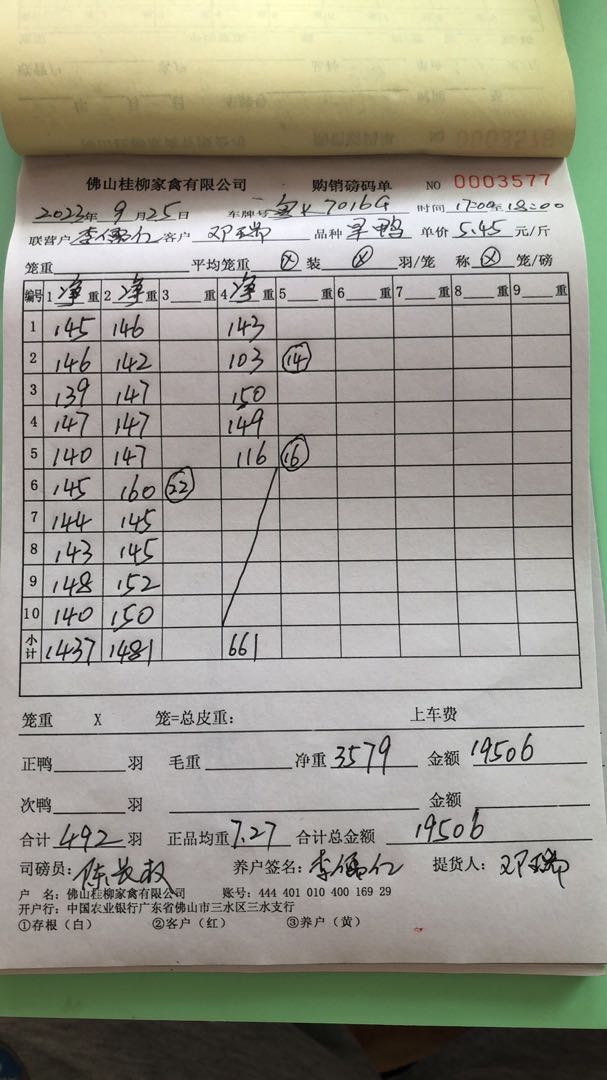 佛山桂柳家禽有限公司 购销磅码单 NO 0003577
2023年9月25日 车牌号 7016G 时间 17:00至18:00
联营户 李儒仁 客户 邓瑞 品种 旱鸭 单价 5.45 元/斤
笼重 平均笼重 ⓧ 装 ⓧ 羽/笼 称 ⓧ 笼/磅
编号 1净重 2净重 3重 4净重 5重 6重 7重 8重 9重
1 145 146 143
2 146 142 103 ⑭
3 139 147 150
4 147 147 149
5 140 147 116 ⑯
6 145 160 ㉒
7 144 145
8 143 145
9 148 152
10 140 150
小计 1437 1481 661
笼重 X 笼=总皮重: 上车费
正鸭 羽 毛重 净重 3579 金额 19506
次鸭 羽 金额
合计 492 羽 正品均重 7.27 合计总金额 19506
司磅员: 陈 权 养户签名: 李儒仁 提货人: 邓瑞
户 名: 佛山桂柳家禽有限公司 账号: 444 401 010 400 169 29
开户行: 中国农业银行广东省佛山市三水区三水支行
①存根(白) ②客户(红) ③养户(黄)